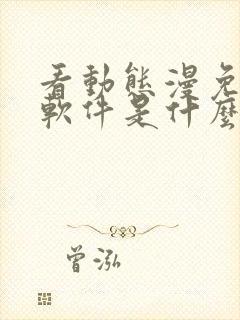 看動態漫免
軟件是什麼
曾泓